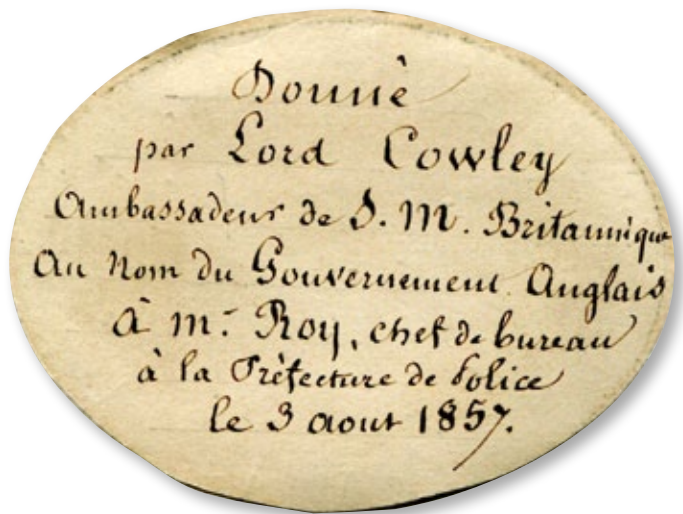 Donné
par Lord Cowley
Ambassadeur de S. M. Britannique
Au Nom du Gouvernement Anglais
à Mr. Roy, chef de bureau
à la Préfecture de Police
le 3 aout 1857.